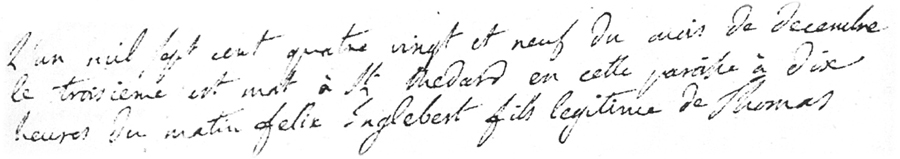 L'an mil sept cent quatre vingt et neuf du mois de decembre
le troisieme est nat à St Medard en cette paroisse à dix
heures du matin felix Englebert fils legitime de Thomas